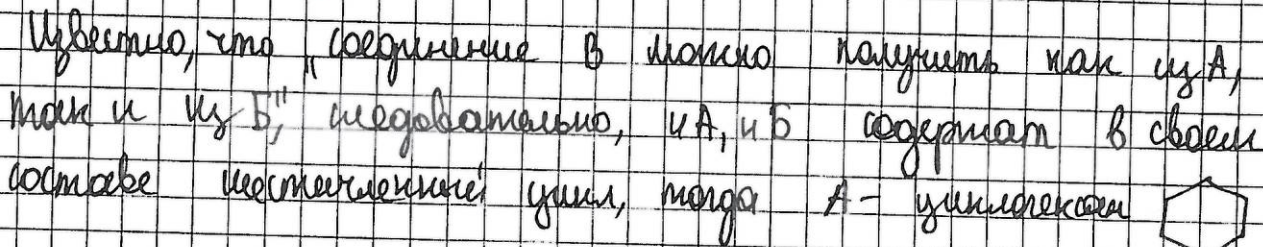 Известно, что „соединение В можно получить как из А,
так и из Б", следовательно, и А, и Б содержат в своем
составе шестичленный цикл, тогда А - циклогексан